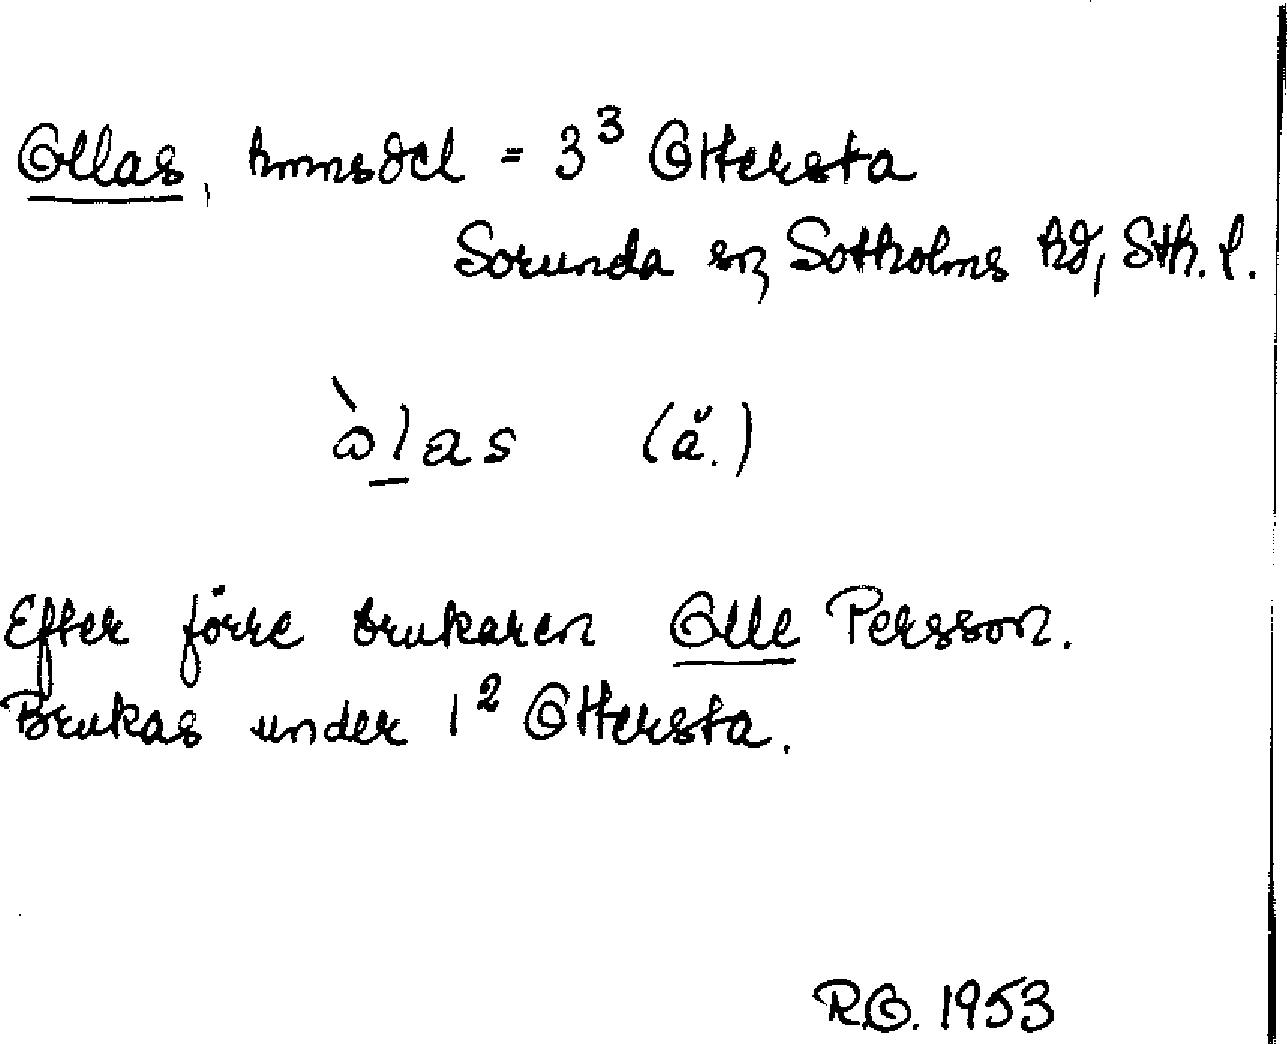 Ollas, hmnsdel = 3³ Ottersta
Sorunda sn, Sotholms hd, Sth. l.
òlas (ă.)
Efter förre brukaren Olle Persson.
Brukas under 1² Ottersta.
RO. 1953